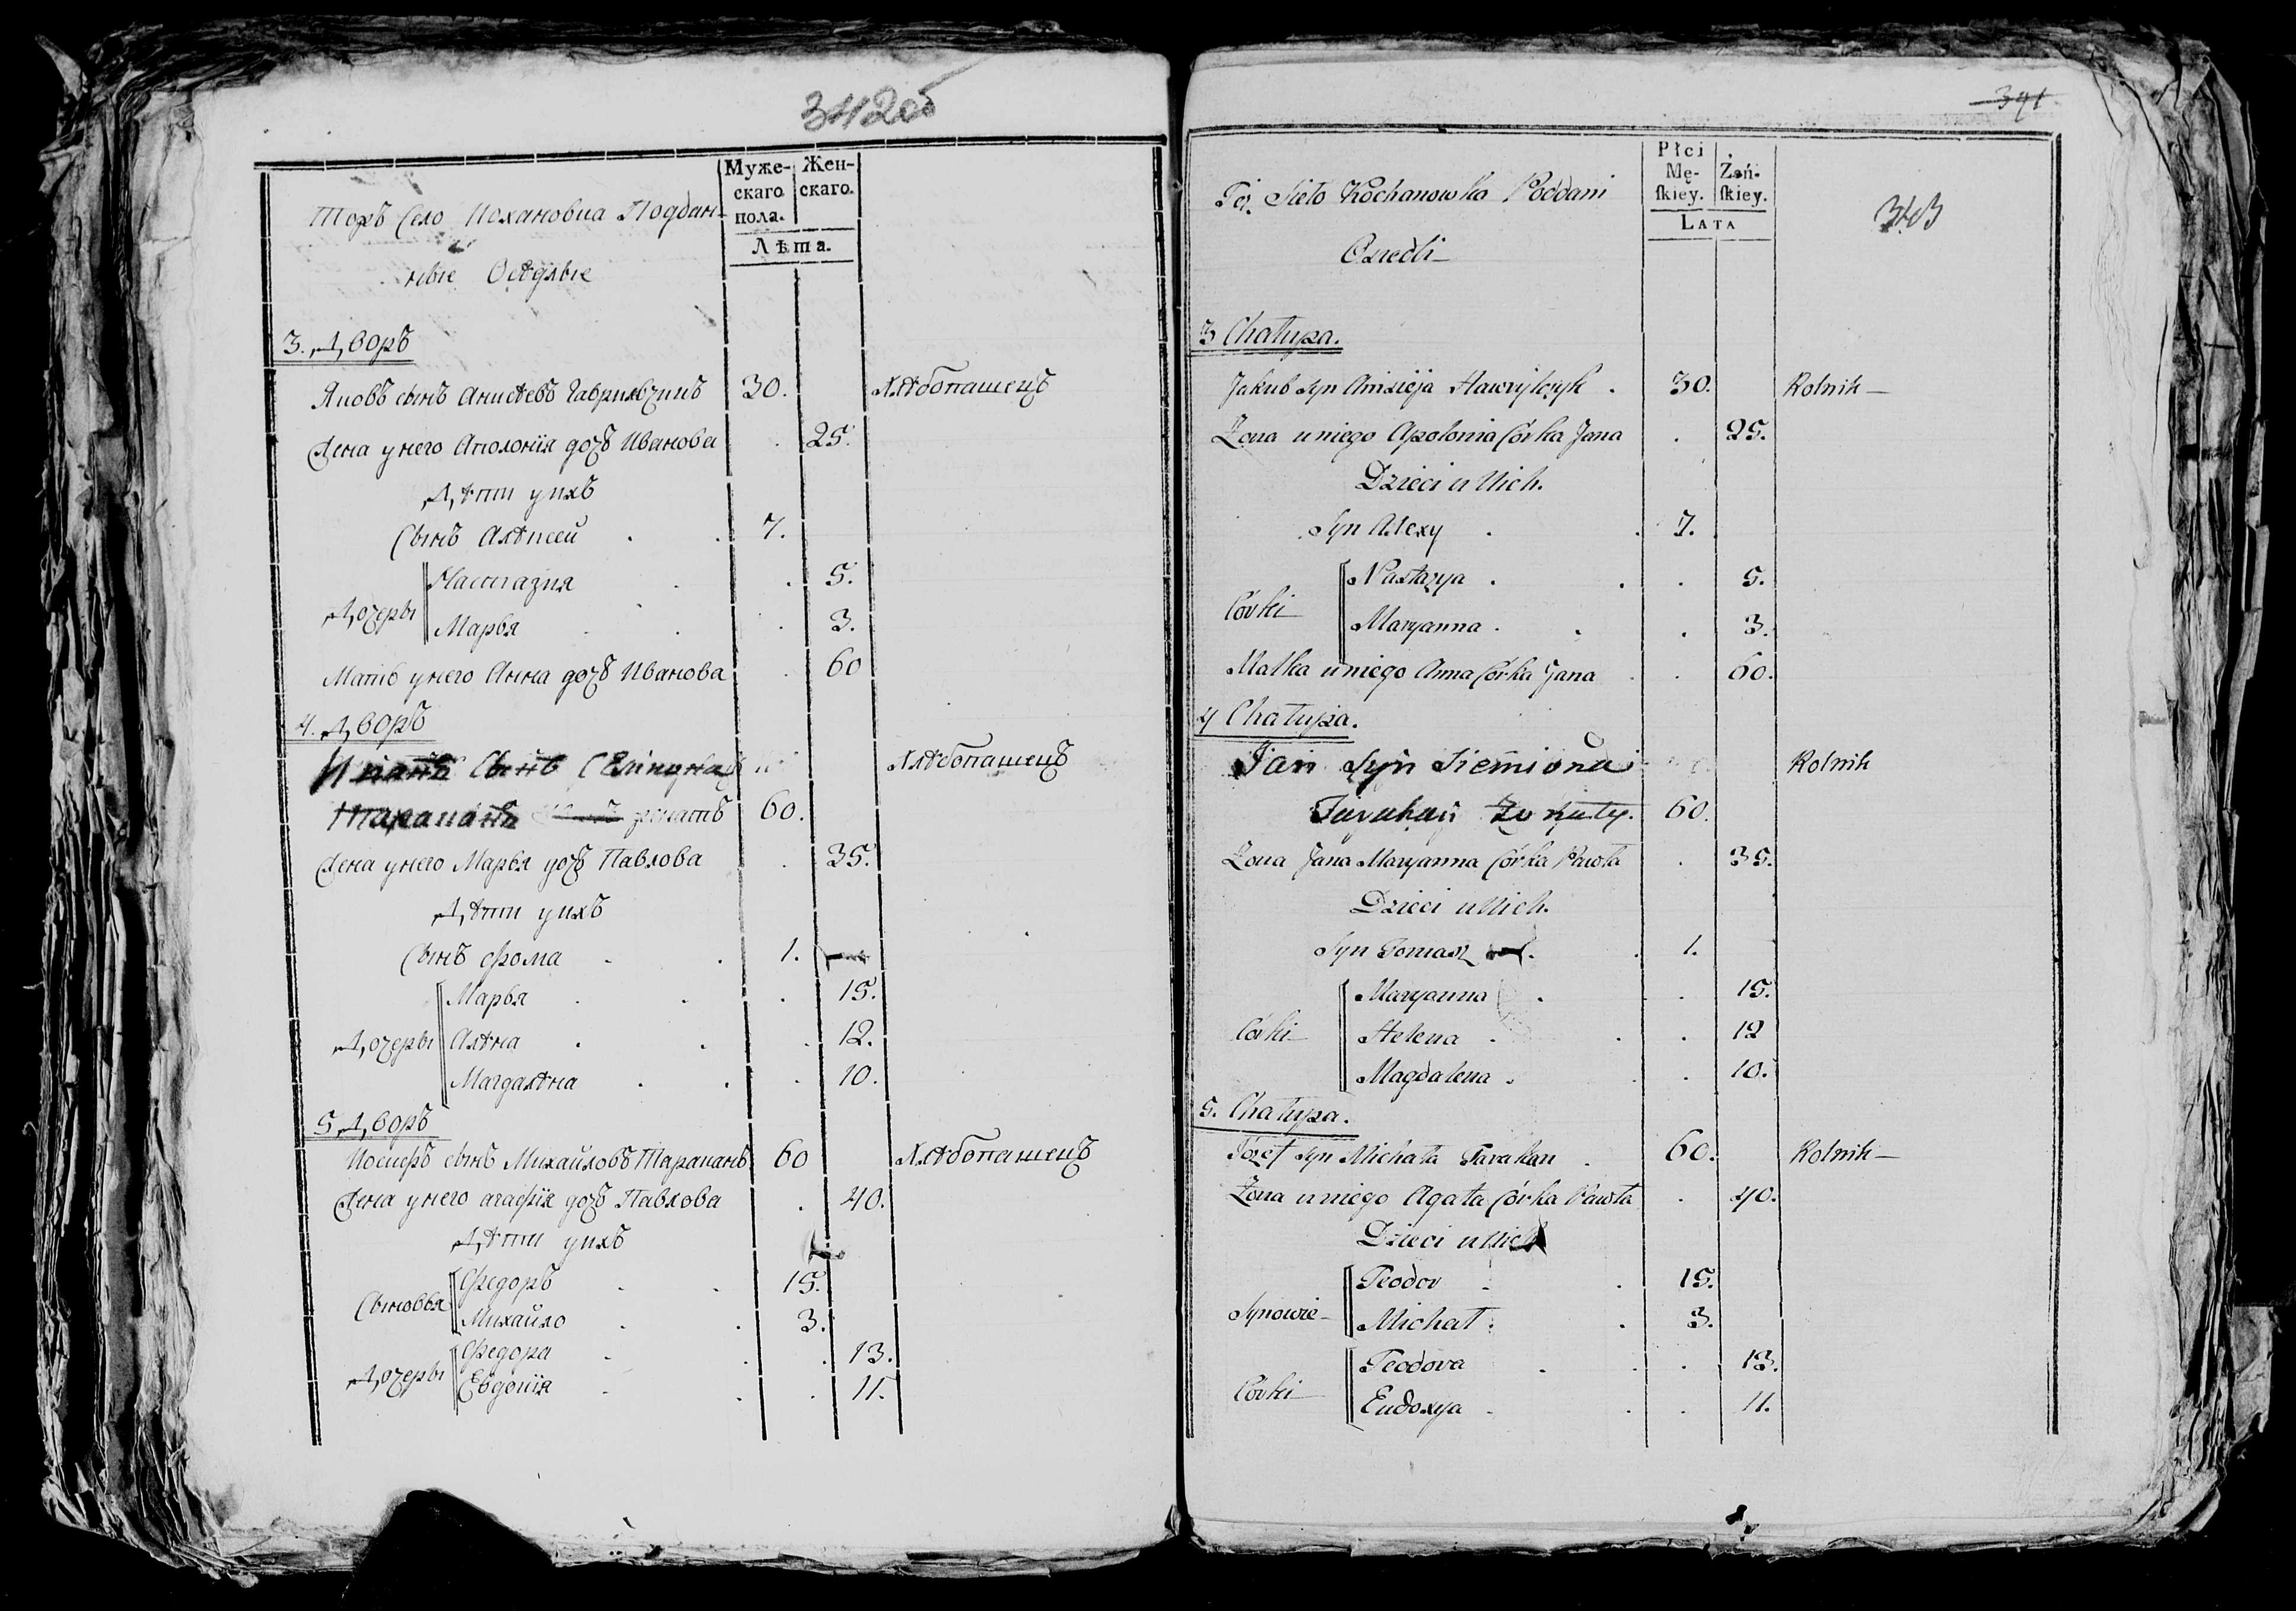 342об
Муже-
скаго
пола.
Жен-
скаго.
Лѣта.
Тожъ Село Кохановка Поддан-
ные Осѣдлые
3. Дворъ
Яковъ сынъ Анисѣевъ Гаврильчикъ 30. Хлѣбопашецъ
Жена унего Аполонія дочь Иванова . 25.
Дѣти унхъ
Сынъ Алѣксей . . 7.
Дочеры
Настазия . . 5.
Марья . . . 3.
Мать унего Анна дочь Иванова . 60
4. Дворъ
Иванъ Сынъ Хлѣбопашецъ
Тараканъ 60.
Жена унего Марья дочь Павлова . 35.
Дѣти унхъ
Сынъ Фома . . 1.
Дочеры
Марья . . . 15.
Алѣна . . . 12.
Магдалѣна . . . 10.
5 Дворъ
Иосифъ сынъ Михайловъ Тараканъ 60 Хлѣбопашецъ
Жена унего агафія дочь Павлова . 40.
Дѣти унхъ
Сыновья
Федоръ . . 15.
Михайло . . 3.
Дочеры
Федора . . . 13.
Евдокія . . . 11.
341
Płci
Mę-
ſkiey.
Żeń-
ſkiey.
LATA
343
Toż Sieło Kochanowka Poddani
Osiedli
3 Chałupa.
Jakub Syn Anisieja Hawrylczyk . 30. Rolnik
Żona uniego Apolonia Córka Jana . 25.
Dzieci u Nich.
Syn Alexy . . 7.
Córki
Nastazya . . . 5.
Maryanna . . . 3.
Matka uniego Anna Córka Jana . . 60.
4 Chałupa.
Jan Syn Siemiona Rolnik
Tarakan 60.
Żona Jana Maryanna Córka Pawła . 35.
Dzieci u Nich.
Syn Tomasz . 1.
Córki
Maryanna . . . 15.
Helena . . . 12
Magdalena . . . 10.
5. Chałupa.
Józef Syn Michała Tarakan . 60. Rolnik
Żona uniego Agata Córka Pawła . 40.
Dzieci u Nich
Synowie
Teodor . . 15.
Michał . . 3.
Córki
Teodora . . . 13.
Eudoxya . . . 11.